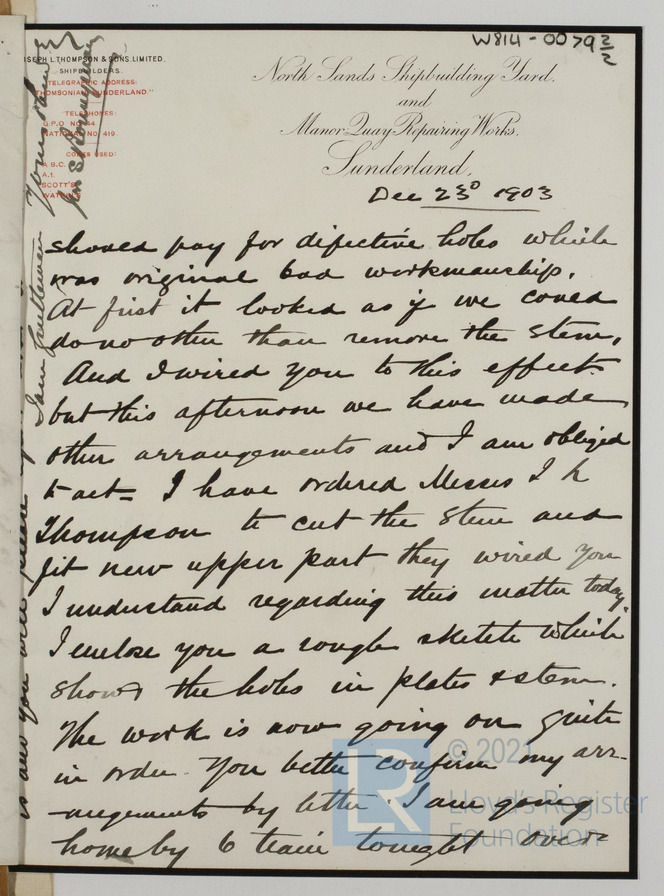 W814-0079 2/2
JOSEPH L. THOMPSON & SONS. LIMITED.
SHIPBUILDERS.
TELEGRAPHIC ADDRESS:
"THOMSONIAN SUNDERLAND."
TELEPHONES:
G.P.O. No. 44.
NATIONAL NO. 419.
CODES USED:
A.B.C.
A.1.
SCOTT'S
WATKINS
North Sands Shipbuilding Yard,
and
Manor Quay Repairing Works,
Sunderland,
Dec 23rd 1903
should pay for difective holes which
was original bad workmanship.
At first it looked as if we could
do no other than remove the stem,
And I wired you to this effect
but this afternoon we have made
other arrangements and I am obliged
to act= I have ordered Messrs J L
Thompson to cut the stem and
fit new upper part they wired you
I understand regarding this matter today
I enclose you a rough sketch which
shows the holes in plates & stem.
The work is now going on quite
in order. You better confirm my arr-
angements by letter. I am going
home by 6 train tonight over
I am Gentlemen
Yours
© 2021
Lloyd's Register
Foundation